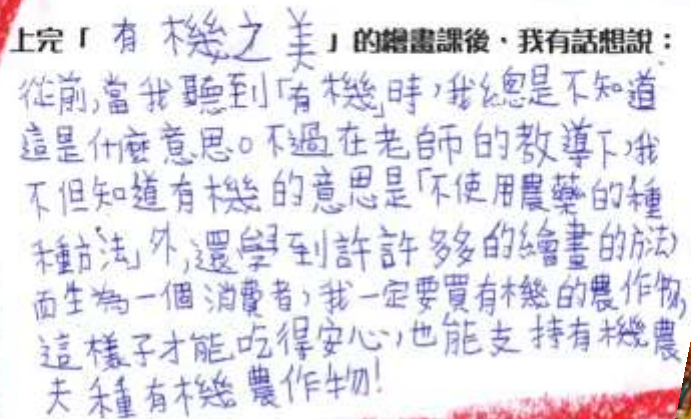 上完「有機之美」的繪畫課後,我有話想說:
從前,當我聽到「有機」時,我總是不知道
這是什麼意思。不過在老師的教導下,我
不但知道有機的意思是「不使用農藥的種
種方法」外,還學到許許多多的繪畫的方法,
而生為一個消費者,我一定要買有機的農作物,
這樣子才能吃得安心,也能支持有機農
夫種有機農作物!